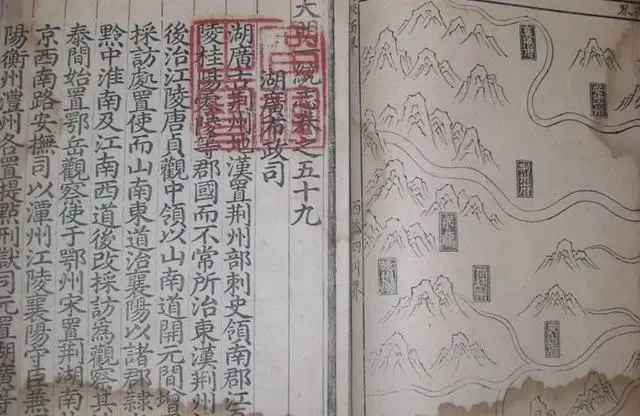 界
襄陽府
荊州府
西抵四川界
大明一統志卷之五十九
湖廣布政司
湖廣古荆州地漢置荆州部刺史領南郡江
陵桂陽零陵等郡國而不常所治東漢荆州
後治江陵唐貞觀中領以山南道開元間增
採訪處置使而山南東道治襄陽以諸郡隸
黔中淮南及江南西道後改採訪爲觀察其
秦間始置鄂岳觀察使于鄂州宋置荆湖南
京西南路安撫司以潭州江陵襄陽守臣兼
陽衡州澧州各置提點刑獄司元置湖廣等